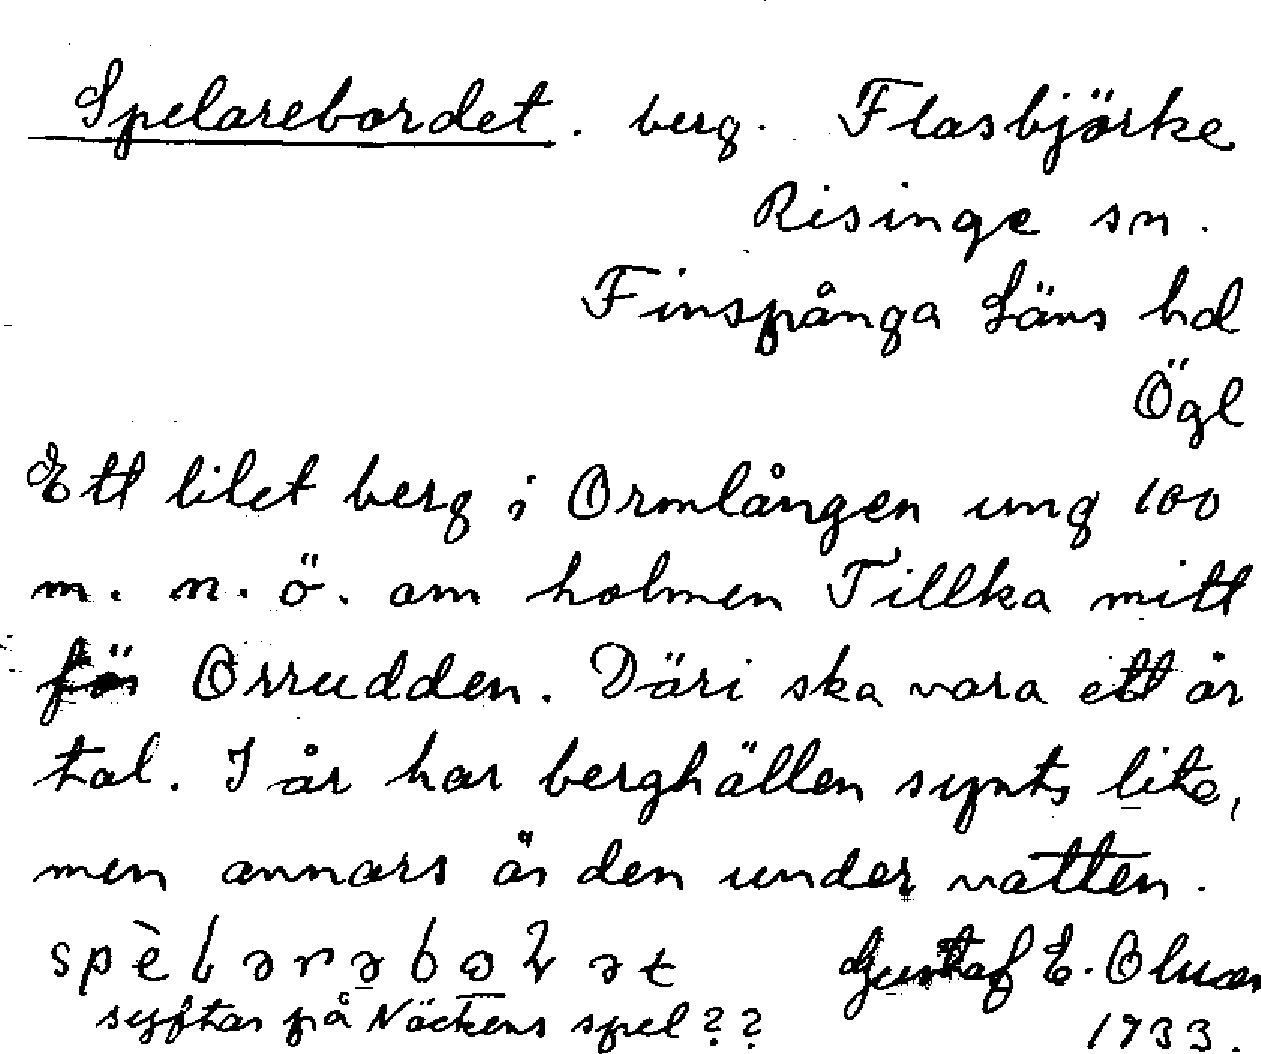 Spelarebordet. berg. Flasbjörke
Risinge sn.
Finspånga Läns hd
Ögl
Ett litet berg i Ormlången ung 100
m. n. ö. om holmen Tillka mitt
för Orrudden. Däri ska vara ett år
tal. I år har berghällen synts lite,
men annars är den under vatten.
Gustaf E.
syftar på Näckens spel??
1933.